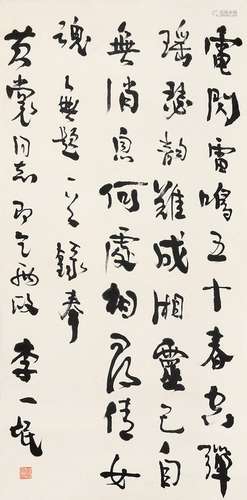 電閃雷鳴五十春空彈
瑤瑟韵難成湘靈已自
無消息何處相尋倩女
魂 無題一首錄奉
黄裳同志即乞兩政 李一氓